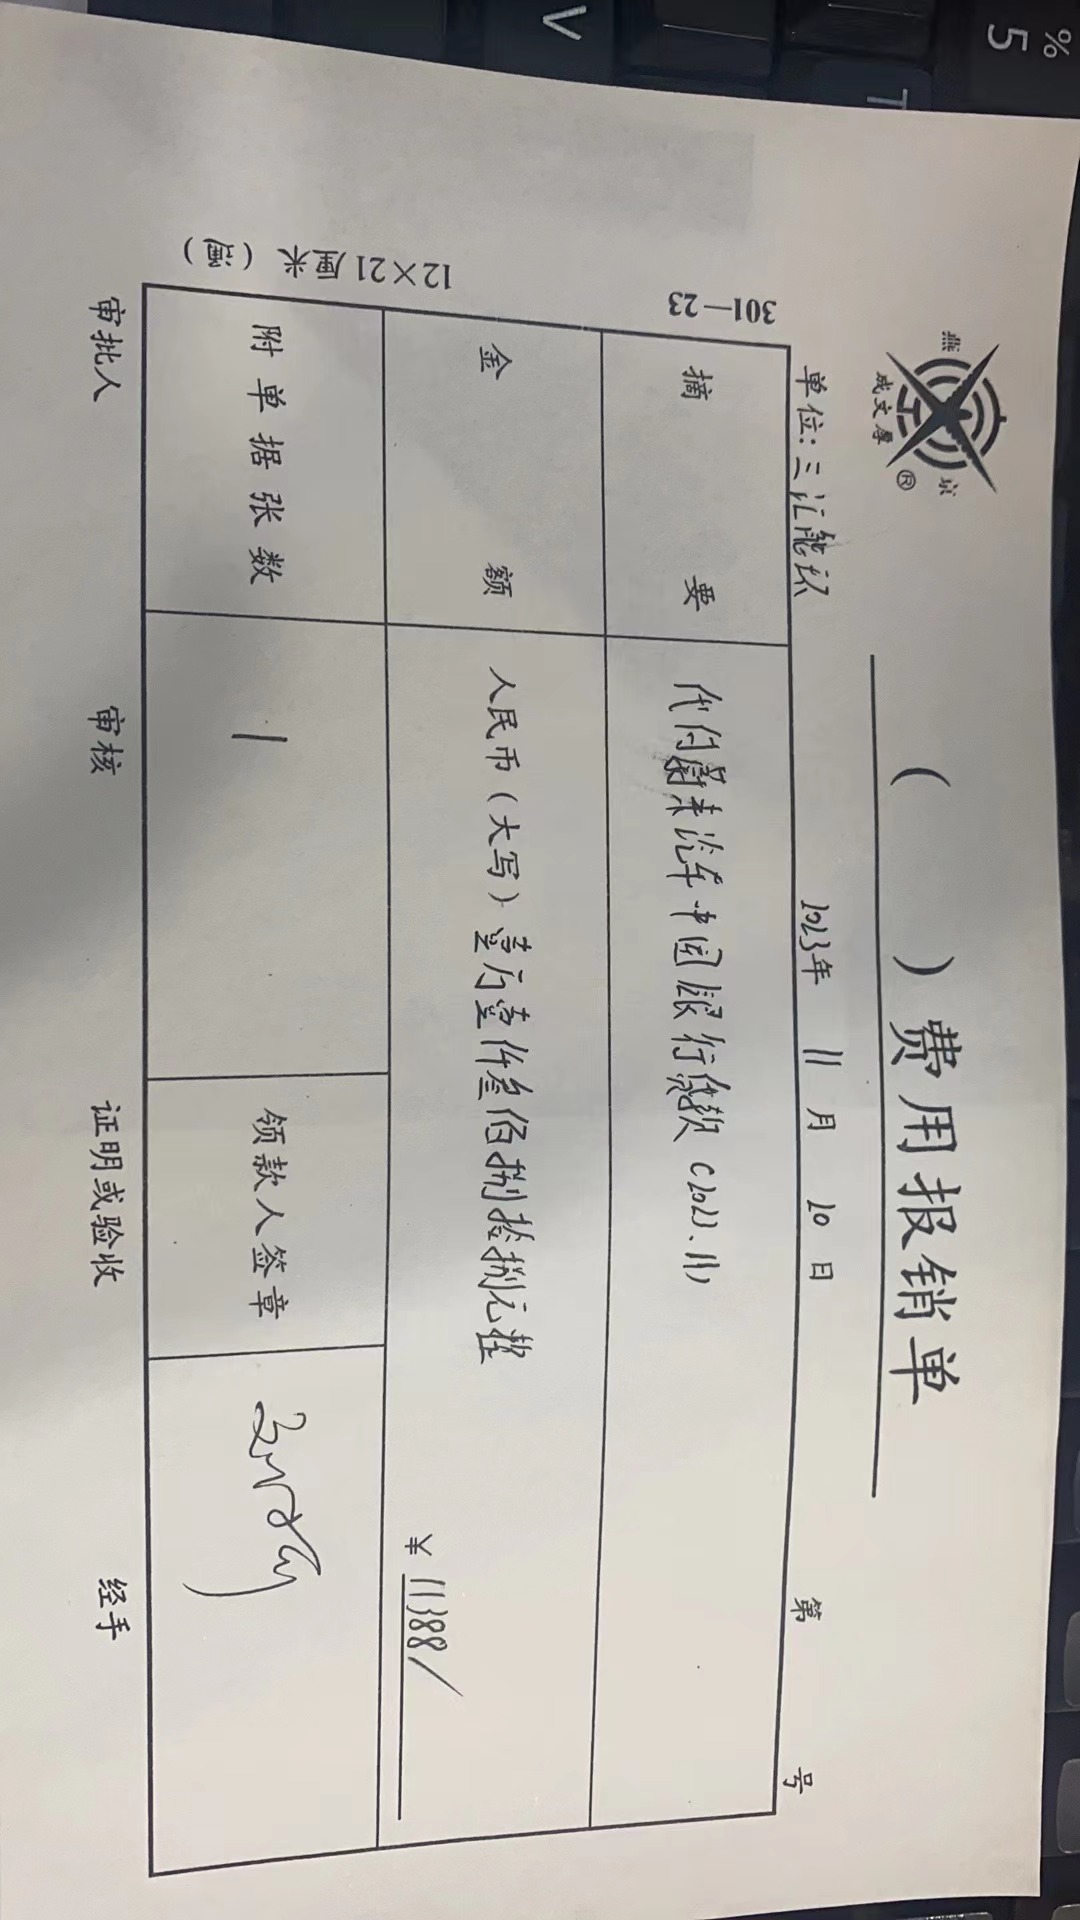 燕 京
成文厚 ®
( ) 费用报销单
单位：三汇能环 2023年 11 月 20 日 第 号
摘 要 代付蔚来汽车中国银行贷款(2023.11)
金 额 人民币（大写）壹万壹仟叁佰捌拾捌元整
¥ 11388/
附单据张数 1 领款人签章
审批人 审核 证明或验收 经手
301—23
12×21厘米（通）
% 5
T
V